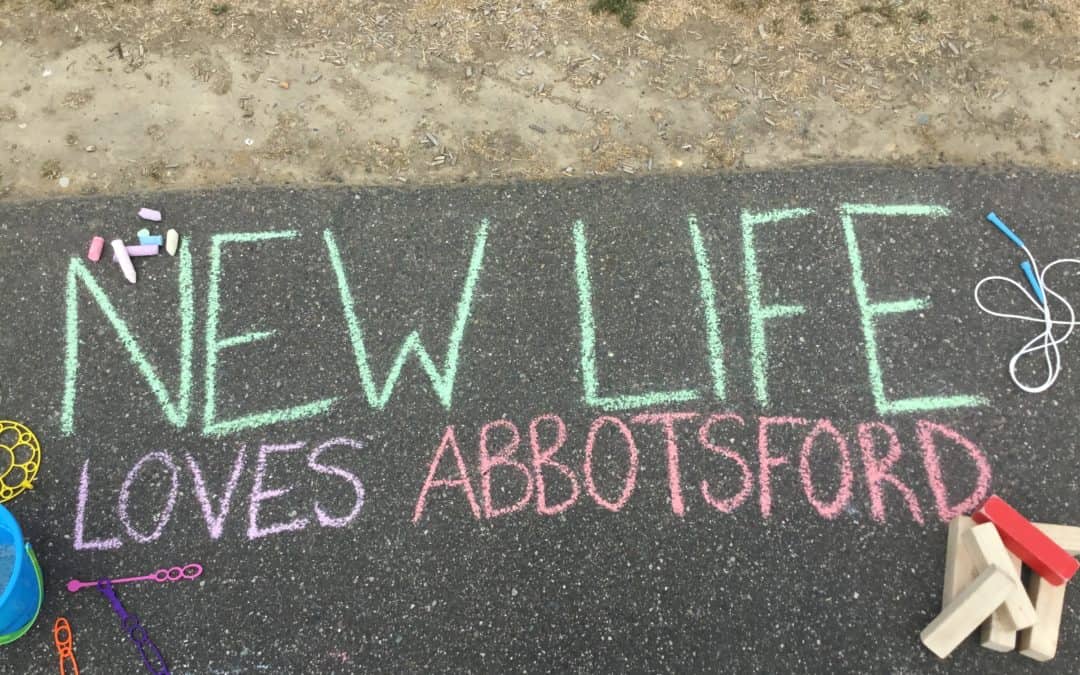 NEW LIFE
LOVES ABBOTSFORD